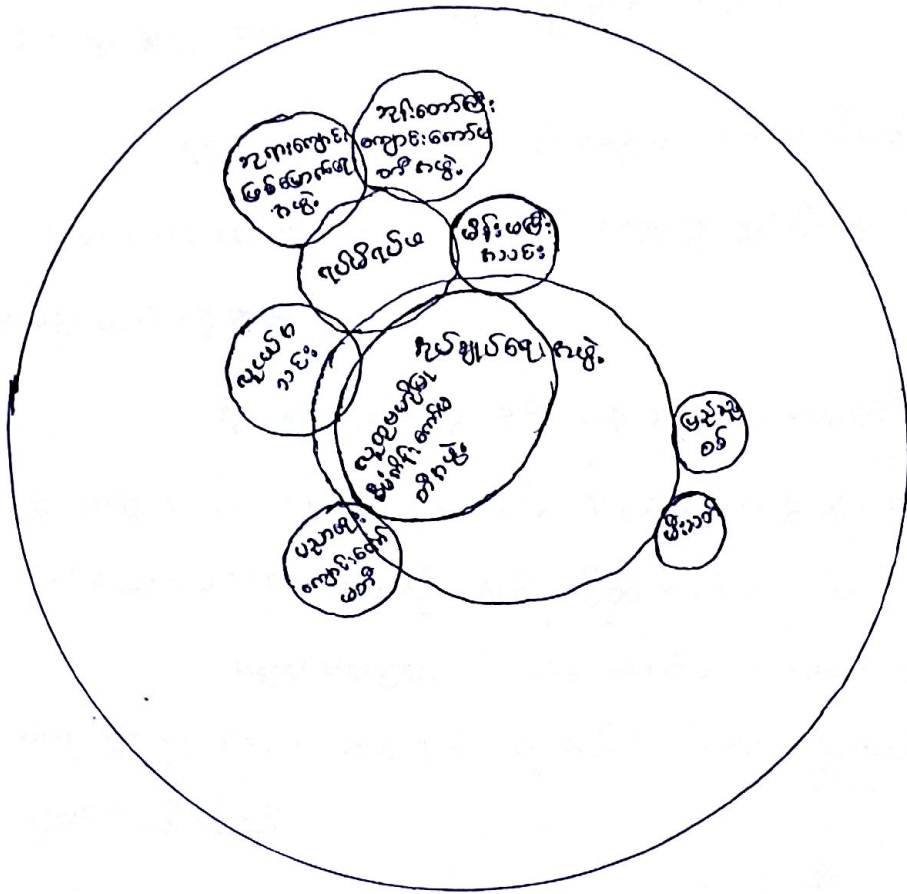 ဘုရားကျောင်း
ဖြစ်မြောက်ရေး
အဖွဲ့
ဘုန်းတော်ကြီး
ကျောင်းကော်မ
တီအဖွဲ့
ရပ်မိရပ်ဖ
မိန်းမကြီး
အသင်း
လူငယ်အ
သင်း
အုပ်ချုပ်ရေးအဖွဲ့
လူထုဗဟိုပြု
စီမံကိန်းကော်မ
တီအဖွဲ့
ပြည်သူ့
စစ်
မီးသတ်
ပညာရေး
ကျောင်းကော်
မတီ